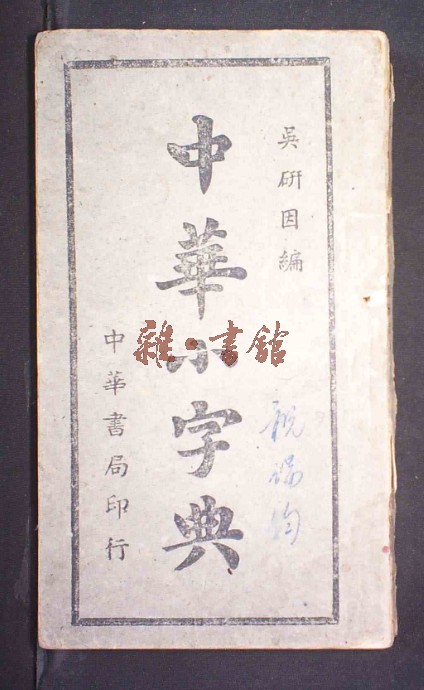 吳研因編
中華小字典
中華書局印行
雜·書館